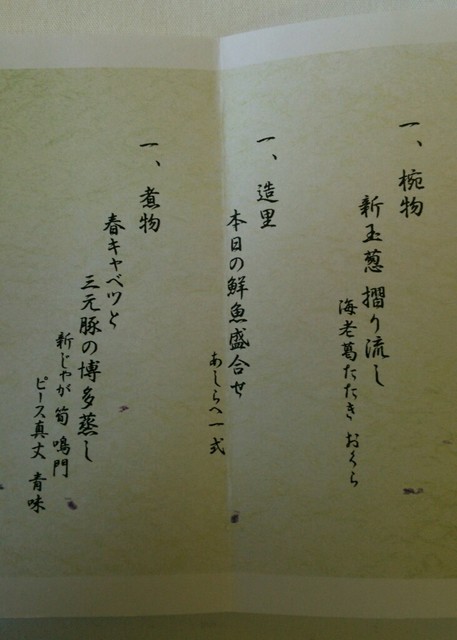 一、椀物
新玉葱 摺り流し
海老葛たたき おくら
一、造里
本日の鮮魚盛合せ
あしらへ一式
一、煮物
春キャベツと
三元豚の博多蒸し
新じゃが 筍 鳴門
ピース真丈 青味